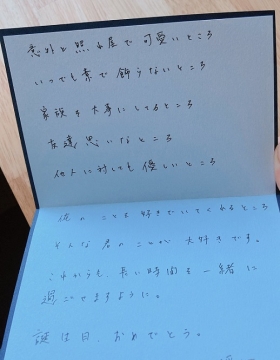 意外と照れ屋で可愛いところ
いつでも素で飾らないところ
家族を大事にしてるところ
友達思いなところ
他人に対しても優しいところ
俺のことを好きでいてくれるところ
そんな君のことが大好きです。
これからも、長い時間を一緒に
過ごせますように。
誕生日、おめでとう。